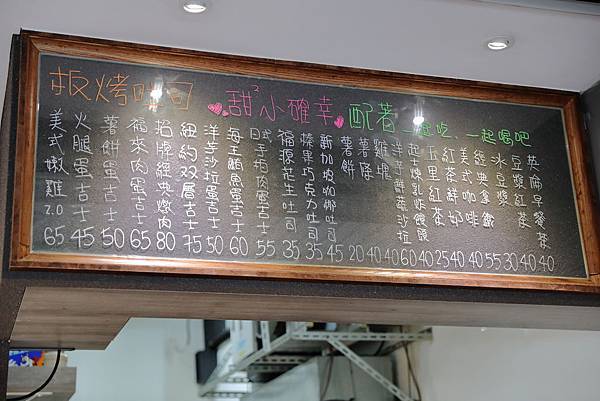 板烤吐司 甜²小確幸 配著一起吃、一起喝吧
美式嫩雞2.0 65
火腿蛋吉士 45
薯餅蛋吉士 50
福來肉蛋吉士 65
招牌經典燉肉 80
紐約双層吉士 75
洋芋沙拉蛋吉士 50
海王鮪魚蛋吉士 60
日式手拍肉蛋吉士 55
福源花生吐司 35
榛果巧克力吐司 35
新加坡咖椰吐司 45
薯餅 20
薯條 40
雞塊 40
洋芋鮮蔬沙拉 60
起士煉乳炸饅頭 40
古早紅茶 25
紅茶鮮奶 40
美式咖啡 40
經典拿鐵 55
冰豆漿 30
豆漿紅茶 40
英倫早餐茶 40